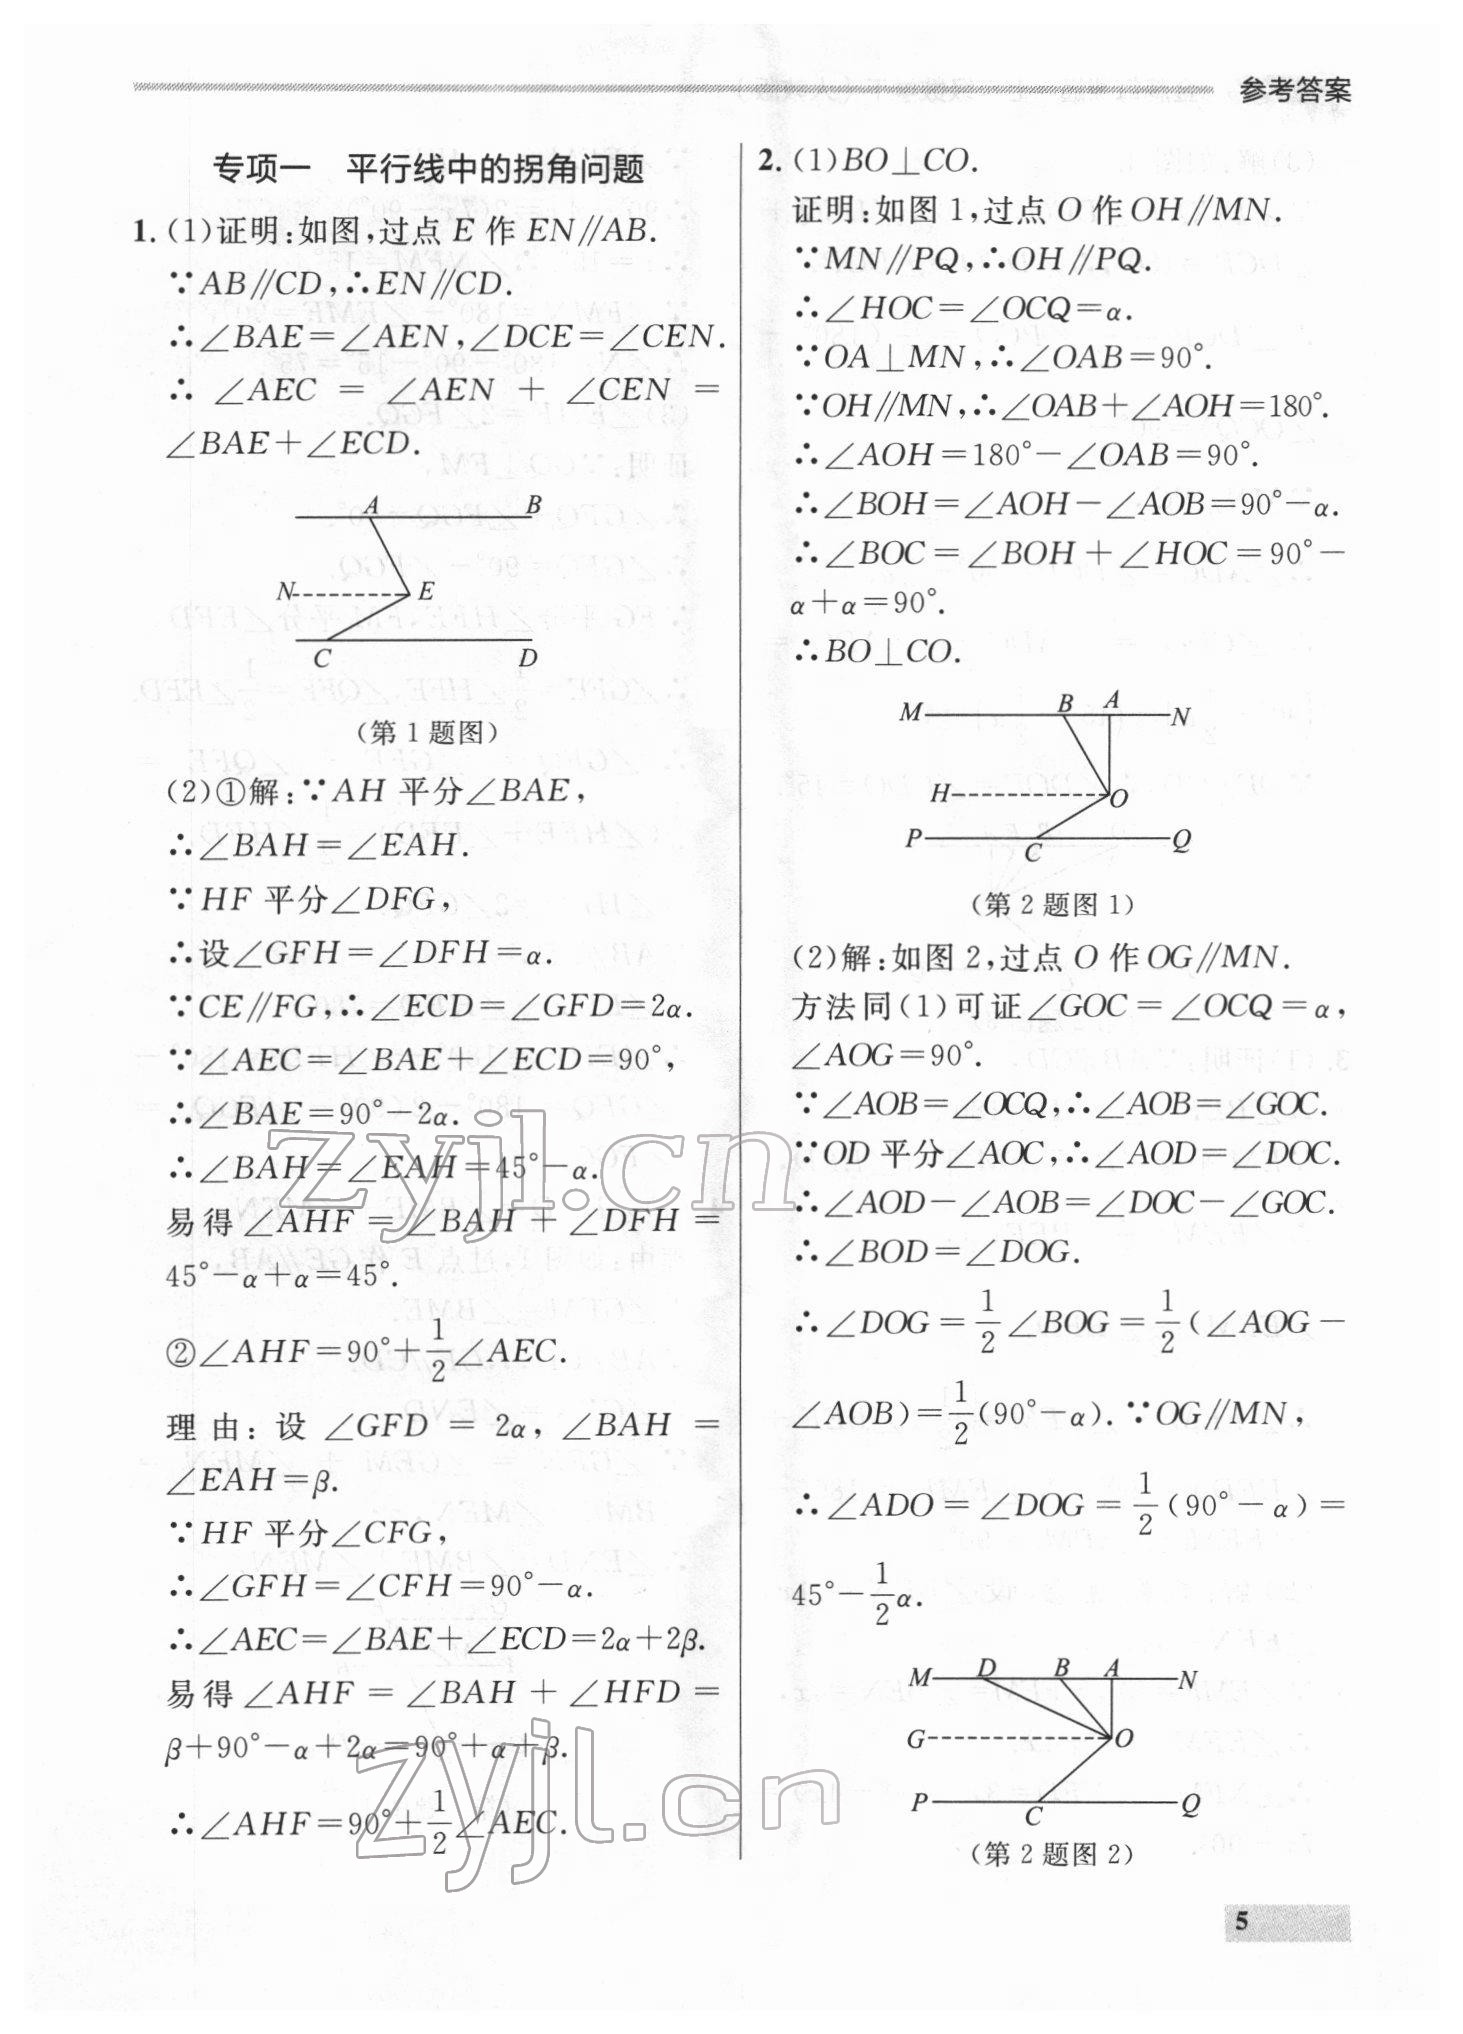 参考答案
专项一　平行线中的拐角问题
1. (1)证明:如图,过点 E 作 EN∥AB.
∵AB∥CD,∴EN∥CD.
∴∠BAE=∠AEN,∠DCE=∠CEN.
∴ ∠AEC = ∠AEN + ∠CEN =
∠BAE+∠ECD.
A B
N E
C D
(第 1 题图)
(2)①解:∵AH 平分∠BAE,
∴∠BAH=∠EAH.
∵HF 平分∠DFG,
∴设∠GFH=∠DFH=α.
∵CE∥FG,∴∠ECD=∠GFD=2α.
∵∠AEC=∠BAE+∠ECD=90°,
∴∠BAE=90°-2α.
∴∠BAH=∠EAH=45°-α.
易得∠AHF=∠BAH+∠DFH=
45°-α+α=45°.
②∠AHF=90°+1/2∠AEC.
理由:设 ∠GFD = 2α, ∠BAH =
∠EAH=β.
∵HF 平分∠CFG,
∴∠GFH=∠CFH=90°-α.
∴∠AEC=∠BAE+∠ECD=2α+2β.
易得∠AHF=∠BAH+∠HFD=
β+90°-α+2α=90°+α+β.
∴∠AHF=90°+1/2∠AEC.
2. (1)BO⊥CO.
证明:如图 1,过点 O 作 OH∥MN.
∵MN∥PQ,∴OH∥PQ.
∴∠HOC=∠OCQ=α.
∵OA⊥MN,∴∠OAB=90°.
∵OH∥MN,∴∠OAB+∠AOH=180°.
∴∠AOH=180°-∠OAB=90°.
∴∠BOH=∠AOH-∠AOB=90°-α.
∴∠BOC=∠BOH+∠HOC=90°-
α+α=90°.
∴BO⊥CO.
M B A N
H O
P C Q
(第 2 题图 1)
(2)解:如图 2,过点 O 作 OG∥MN.
方法同(1)可证∠GOC=∠OCQ=α,
∠AOG=90°.
∵∠AOB=∠OCQ,∴∠AOB=∠GOC.
∵OD 平分∠AOC,∴∠AOD=∠DOC.
∴∠AOD-∠AOB=∠DOC-∠GOC.
∴∠BOD=∠DOG.
∴∠DOG=1/2∠BOG=1/2(∠AOG-
∠AOB)=1/2(90°-α).∵OG∥MN,
∴∠ADO=∠DOG=1/2(90°-α)=
45°-1/2α.
M D B A N
G O
P C Q
(第 2 题图 2)
5
zyjl.cn
zyjl.cn